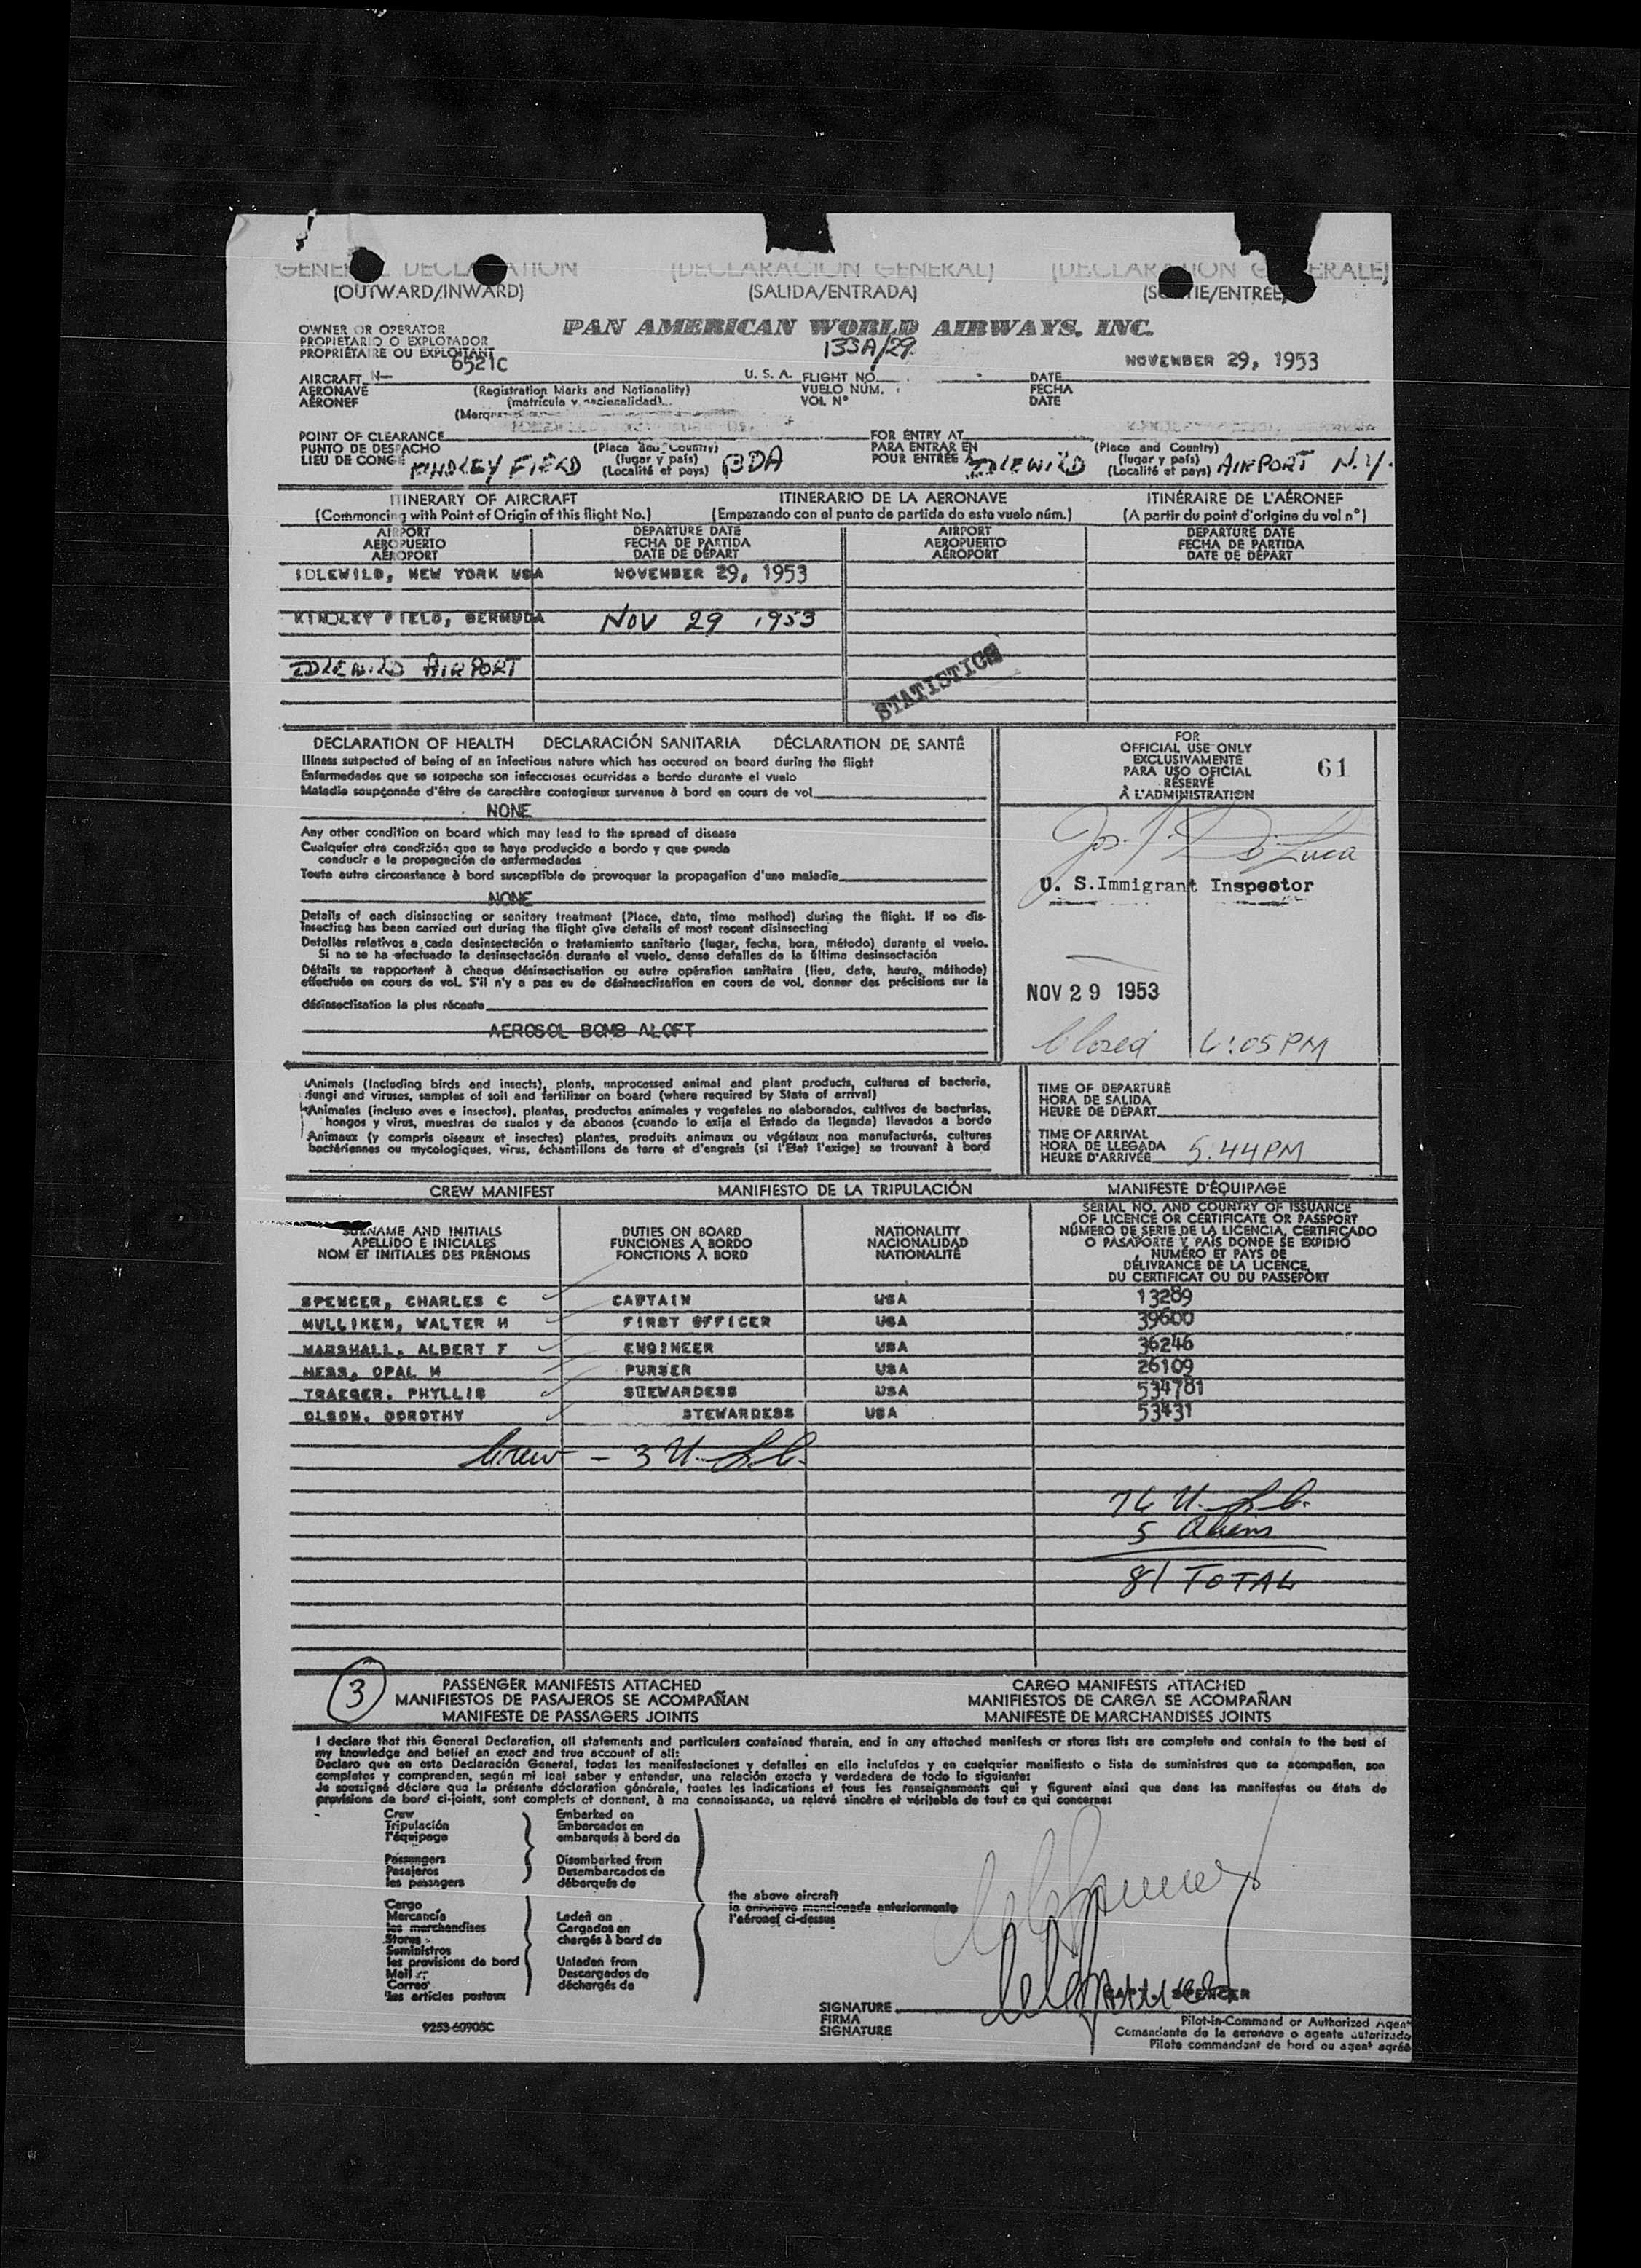 GENERAL DECLARATION (DECLARACIÓN GENERAL) (DÉCLARATION GÉNÉRALE)
(OUTWARD/INWARD) (SALIDA/ENTRADA) (SORTIE/ENTRÉE)
OWNER OR OPERATOR
PROPIETARIO O EXPLOTADOR
PROPRIÉTAIRE OU EXPLOITANT
PAN AMERICAN WORLD AIRWAYS, INC.
133A/29
6521C
NOVEMBER 29, 1953
AIRCRAFT N- U.S.A. FLIGHT NO. DATE
AERONAVE (Registration Marks and Nationality) VUELO NÚM. FECHA
AÉRONEF (matrícula y nacionalidad) VOL N° DATE
POINT OF CLEARANCE FOR ENTRY AT
PUNTO DE DESPACHO (Place and Country) PARA ENTRAR EN (Place and Country)
LIEU DE CONGÉ (lugar y país) POUR ENTRÉE À (lugar y país)
KINDLEY FIELD (Localité et pays) BDA IDLEWILD (Localité et pays) AIRPORT N.Y.
ITINERARY OF AIRCRAFT ITINERARIO DE LA AERONAVE ITINÉRAIRE DE L'AÉRONEF
(Commencing with Point of Origin of this flight No.) (Empezando con el punto de partida de este vuelo núm.) (A partir du point d'origine du vol n°)
AIRPORT DEPARTURE DATE AIRPORT DEPARTURE DATE
AEROPUERTO FECHA DE PARTIDA AEROPUERTO FECHA DE PARTIDA
AÉROPORT DATE DE DÉPART AÉROPORT DATE DE DÉPART
IDLEWILD, NEW YORK USA NOVEMBER 29, 1953
KINDLEY FIELD, BERMUDA NOV 29 1953
IDLEWILD AIRPORT
STATISTICS
DECLARATION OF HEALTH DECLARACIÓN SANITARIA DÉCLARATION DE SANTÉ
Illness suspected of being of an infectious nature which has occured on board during the flight
Enfermedades que se sospecha son infecciosas ocurridas a bordo durante el vuelo
Maladie soupçonnée d'être de caractère contagieux survenue à bord en cours de vol
NONE
Any other condition on board which may lead to the spread of disease
Cualquier otra condición que se haya producido a bordo y que pueda
conducir a la propagación de enfermedades
Toute autre circonstance à bord susceptible de provoquer la propagation d'une maladie
NONE
Details of each disinsecting or sanitary treatment (Place, date, time method) during the flight. If no dis-
insecting has been carried out during the flight give details of most recent disinsecting
Detalles relativos a cada desinsectación o tratamiento sanitario (lugar, fecha, hora, método) durante el vuelo.
Si no se ha efectuado la desinsectación durante el vuelo, dense detalles de la última desinsectación
Détails se rapportant à chaque désinsectisation ou autre opération sanitaire (lieu, date, heure, méthode)
effectuée en cours de vol. S'il n'y a pas eu de désinsectisation en cours de vol, donner des précisions sur la
désinsectisation la plus récente
AEROSOL BOMB ALOFT
FOR
OFFICIAL USE ONLY
EXCLUSIVAMENTE
PARA USO OFICIAL
RÉSERVÉ
À L'ADMINISTRATION
61
Jos. J. Di Luca
U. S. Immigrant Inspector
NOV 29 1953
Closed 6:05 PM
Animals (Including birds and insects), plants, unprocessed animal and plant products, cultures of bacteria,
fungi and viruses, samples of soil and fertilizer on board (where required by State of arrival)
Animales (incluso aves e insectos), plantas, productos animales y vegetales no elaborados, cultivos de bacterias,
hongos y virus, muestras de suelos y de abonos (cuando lo exija el Estado de llegada) llevados a bordo
Animaux (y compris oiseaux et insectes) plantes, produits animaux ou végétaux non manufacturés, cultures
bactériennes ou mycologiques, virus, échantillons de terre et d'engrais (si l'État l'exige) se trouvant à bord
TIME OF DEPARTURE
HORA DE SALIDA
HEURE DE DÉPART
TIME OF ARRIVAL
HORA DE LLEGADA
HEURE D'ARRIVÉE 5:44 PM
CREW MANIFEST MANIFIESTO DE LA TRIPULACIÓN MANIFESTE D'ÉQUIPAGE
SURNAME AND INITIALS
APELLIDO E INICIALES
NOM ET INITIALES DES PRÉNOMS
DUTIES ON BOARD
FUNCIONES A BORDO
FONCTIONS À BORD
NATIONALITY
NACIONALIDAD
NATIONALITÉ
SERIAL NO. AND COUNTRY OF ISSUANCE
OF LICENCE OR CERTIFICATE OR PASSPORT
NÚMERO DE SERIE DE LA LICENCIA, CERTIFICADO
O PASAPORTE Y PAÍS DONDE SE EXPIDIÓ
NUMÉRO ET PAYS DE
DÉLIVRANCE DE LA LICENCE,
DU CERTIFICAT OU DU PASSEPORT
SPENCER, CHARLES C CAPTAIN USA 13289
MULLIKEN, WALTER H FIRST OFFICER USA 39600
MARSHALL, ALBERT F ENGINEER USA 36246
HESS, OPAL M PURSER USA 26109
TRAEGER, PHYLLIS STEWARDESS USA 534781
OLSON, DOROTHY STEWARDESS USA 53431
Crew - 3 U.S.C.
76 U.S.C.
5 Aliens
81 TOTAL
3
PASSENGER MANIFESTS ATTACHED CARGO MANIFESTS ATTACHED
MANIFIESTOS DE PASAJEROS SE ACOMPAÑAN MANIFIESTOS DE CARGA SE ACOMPAÑAN
MANIFESTE DE PASSAGERS JOINTS MANIFESTE DE MARCHANDISES JOINTS
I declare that this General Declaration, all statements and particulars contained therein, and in any attached manifests or stores lists are complete and contain to the best of
my knowledge and belief an exact and true account of all:
Declaro que en esta Declaración General, todas las manifestaciones y detalles en ella incluídos y en cualquier manifiesto o lista de suministros que se acompañan, son
completos y comprenden, según mi leal saber y entender, una relación exacta y verdadera de todo lo siguiente:
Je soussigné déclare que la présente déclaration générale, toutes les indications et tous les renseignements qui y figurent ainsi que dans les manifestes ou états de
provisions de bord ci-joints, sont complets et donnent, à ma connaissance, un relevé sincère et véritable de tout ce qui concerne:
Crew Embarked on
Tripulación Embarcados en
l'équipage embarqués à bord de
Passengers Disembarked from
Pasajeros Desembarcados de
les passagers débarqués de
the above aircraft
la aeronave mencionada anteriormente
l'aéronef ci-dessus
Cargo
Mercancía Laden on
les marchandises Cargados en
Stores chargés à bord de
Suministros
les provisions de bord Unladen from
Mail Descargados de
Correo déchargés de
les articles postaux
SPENCER
SIGNATURE
FIRMA
SIGNATURE
Pilot-in-Command or Authorized Agent
Comandante de la aeronave o agente autorizado
Pilote commandant de bord ou agent agréé
9253-60905C